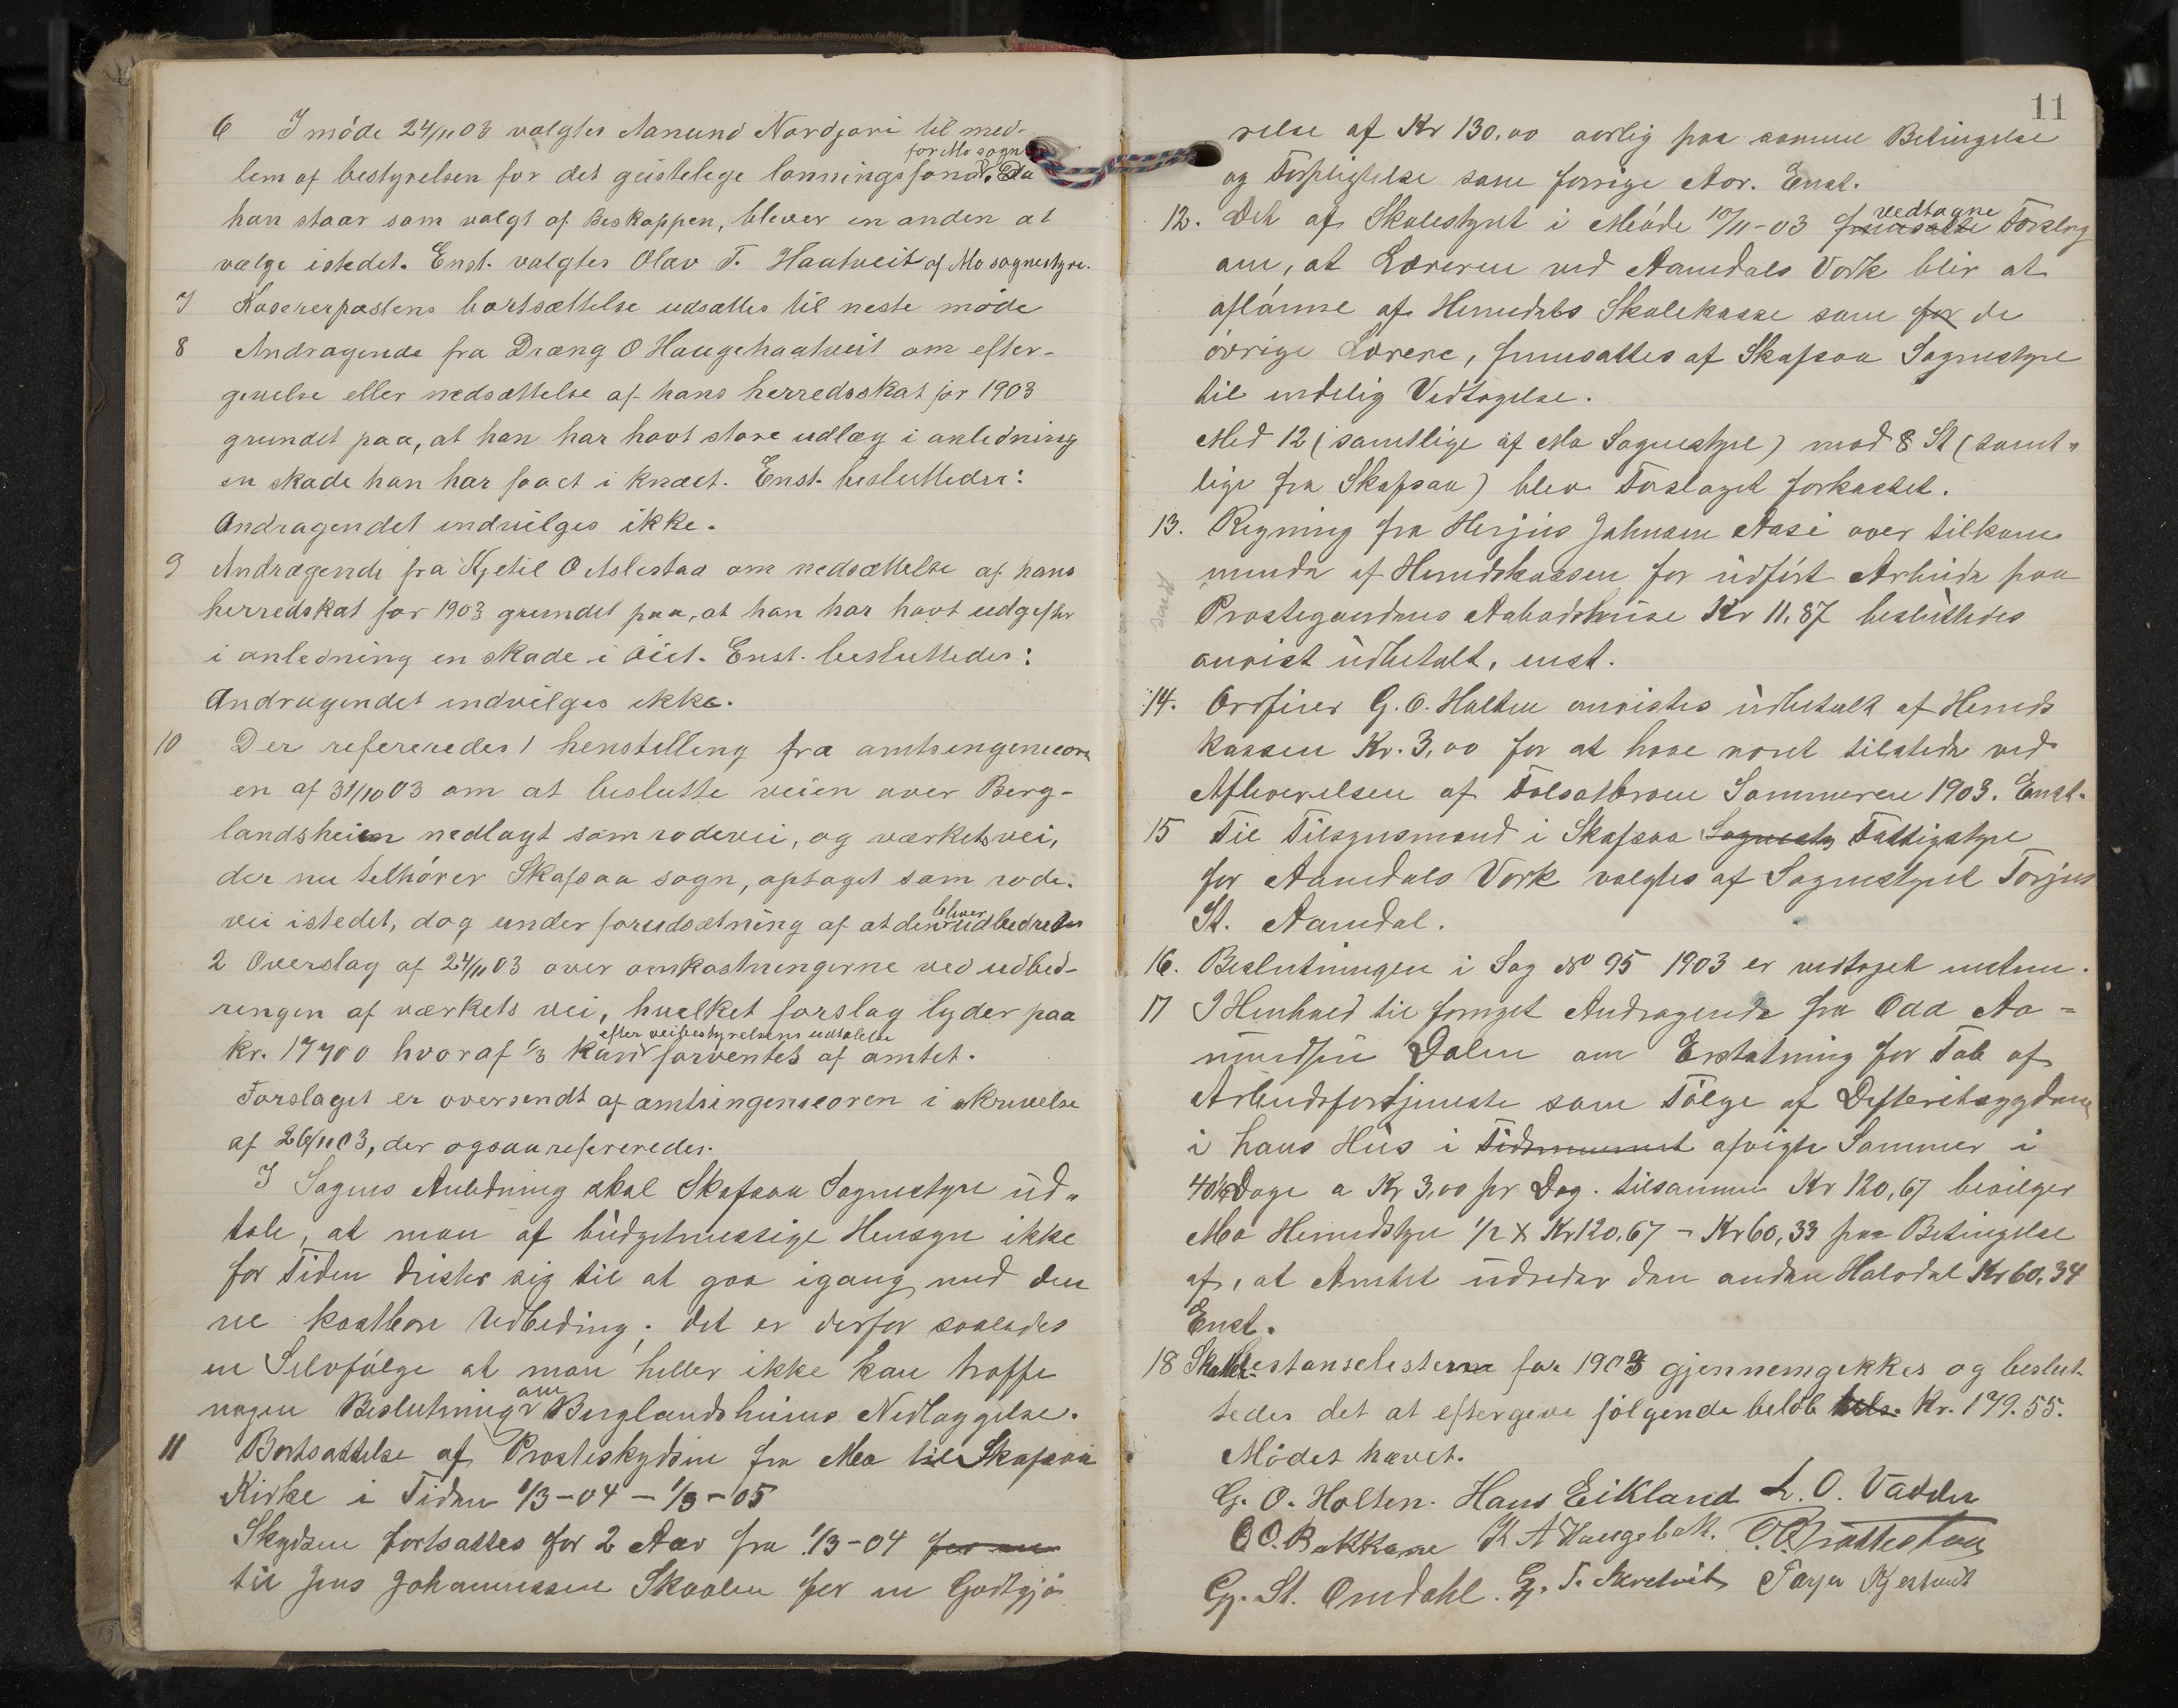 6 I møde 24/11 03 valgtes Aanund Nordjori til med-
for Mo sogn
lem af bestyrelsen for det geistelege lønningsfond. Da
han staar som valgt af Beskoppen, blever en anden at
vælge istedet. Enst. valgtes Olav T. Haatveit af Mo sognestyre.
7 Kasererpostens bortsættelse udsættes til neste møde
8 Andragende fra Dræng O Haugehaatveit om efter-
givelse eller nedsættelse af hans herredsskat for 1903
grundet paa, at han har havt store udlæg i anledning
en skade han har faaet i knæet. Enst. besluttedes:
Andragendet indvilges ikke.
9 Andragende fra Kjetil O Aslestaa om nedsættelse af hans
herredskat for 1903 grundet paa, at han har havt udgefter
i anledning en skade i øiet. Enst. besluttedes:
Andragendet indvilges ikke.
10 Der refereredes 1 henstelling fra amtsingeniøren
en af 31/10 03 om at beslutte veien over Berg-
landsheien nedlagt som rodevei, og værkets vei,
der nu telhører Skafsaa sogn, optaget som rode-
blever
vei istedet, dog under forudsætning af at den udbedres
2 Overslag af 24/11 03 over omkostningerne ved udbed-
ringen af værkets vei, hvelket forslag lyder paa
efter veibestyrelsens udtalelse
kr. 17700 hvoraf 1/3 kan forventes af amtet.
Forslaget er oversendt af amtsingeniøren i skrivelse
af 26/11 03, der ogsaa refereredes.
I Sagens Anledning skal Skafsaa Sognestyre ud-
tale, at man af budgetmessige Hensyn ikke
for Tiden drister sig til at gaa igang med den
ne kostbare Udbedring; det er derfor saaledes
en Selvfølge at man heller ikke kan træffe
om
nogen Beslutning Berglandsheiens Nedlæggelse.
11 Bortsættelse af Presteskydsen fra Mo til Skafsaa
Kirke i Tiden 1/3-04 - 1/3-05
Skydsen bortsattes for 2 Aar fra 1/3-04 for en
til Jens Johannessen Skaalen for en Godtgjø
11
relse af Kr 130,00 aarlig paa samme Betingelse
og Forpligtelse som forrige Aar. Enst.
vedtagne
12. Det af Skolestyret i Møde 10/11-03 fremsatte Forslag
om, at Læreren ved Aamdals Værk blir at
aflønne af Herredets Skolekasse som for de
øvrige Lærere, fremsattes af Skafsaa Sognestyre
til endelig Vedtagelse.
Med 12 (samtlige af Mo Sognestyre) mod 8 St (samt-
lige fra Skafsaa) blev Forslaget forkastet.
13. Regning fra Herjus Johnsen Aase over tilkom
mende af Herredskassen for udført Arbeide paa
sendt
Prestegaardens Aabodshuse Kr 11,87 besluttedes
anvist udbetalt, enst.
14. Ordfører G. O. Holten anvistes udbetalt af Herreds
kassen Kr. 3,00 for at have været tilstede ved
Afleverelsen af Folsatbroen Sommeren 1903. Enst.
15 Til Tilsynsmand i Skafsaa Sognesty Fattigstyre
for Aamdals Værk valgtes af Sognestyret Torjus
St. Aamdal.
16. Beslutningen i Sag No 95 1903 er vedtaget
17 I Henhold til fornyet Andragende fra Odd Aa-
mundsen Dalen om Erstatning for Tab af
Arbeidsfortjeneste som Følge af Defteritsygdom
i hans Hus i Tidsrummet afvigte Sommer i
40 Dage a Kr 3,00 pr Dag. tilsammen Kr 120,67 bevilger
Mo Herredstyre 1/2 x Kr 120,67 = Kr 60,33 paa Betingelse
af, at Amtet udreder den anden Halvdel Kr 60,34
Enst.
18 Skatterestanselisterne for 1903 gjennemgikkes og beslut-
tedes det at eftergive følgende beløb tils. Kr. 179.55.
Mødet hævet.
G. O. Holten. Hans Eikland L. O. Vadder
O O. Bakkane K A Haugebak. O. O. Brottestaa
G. St. Omdahl. G. T. Skretveit Tarjei